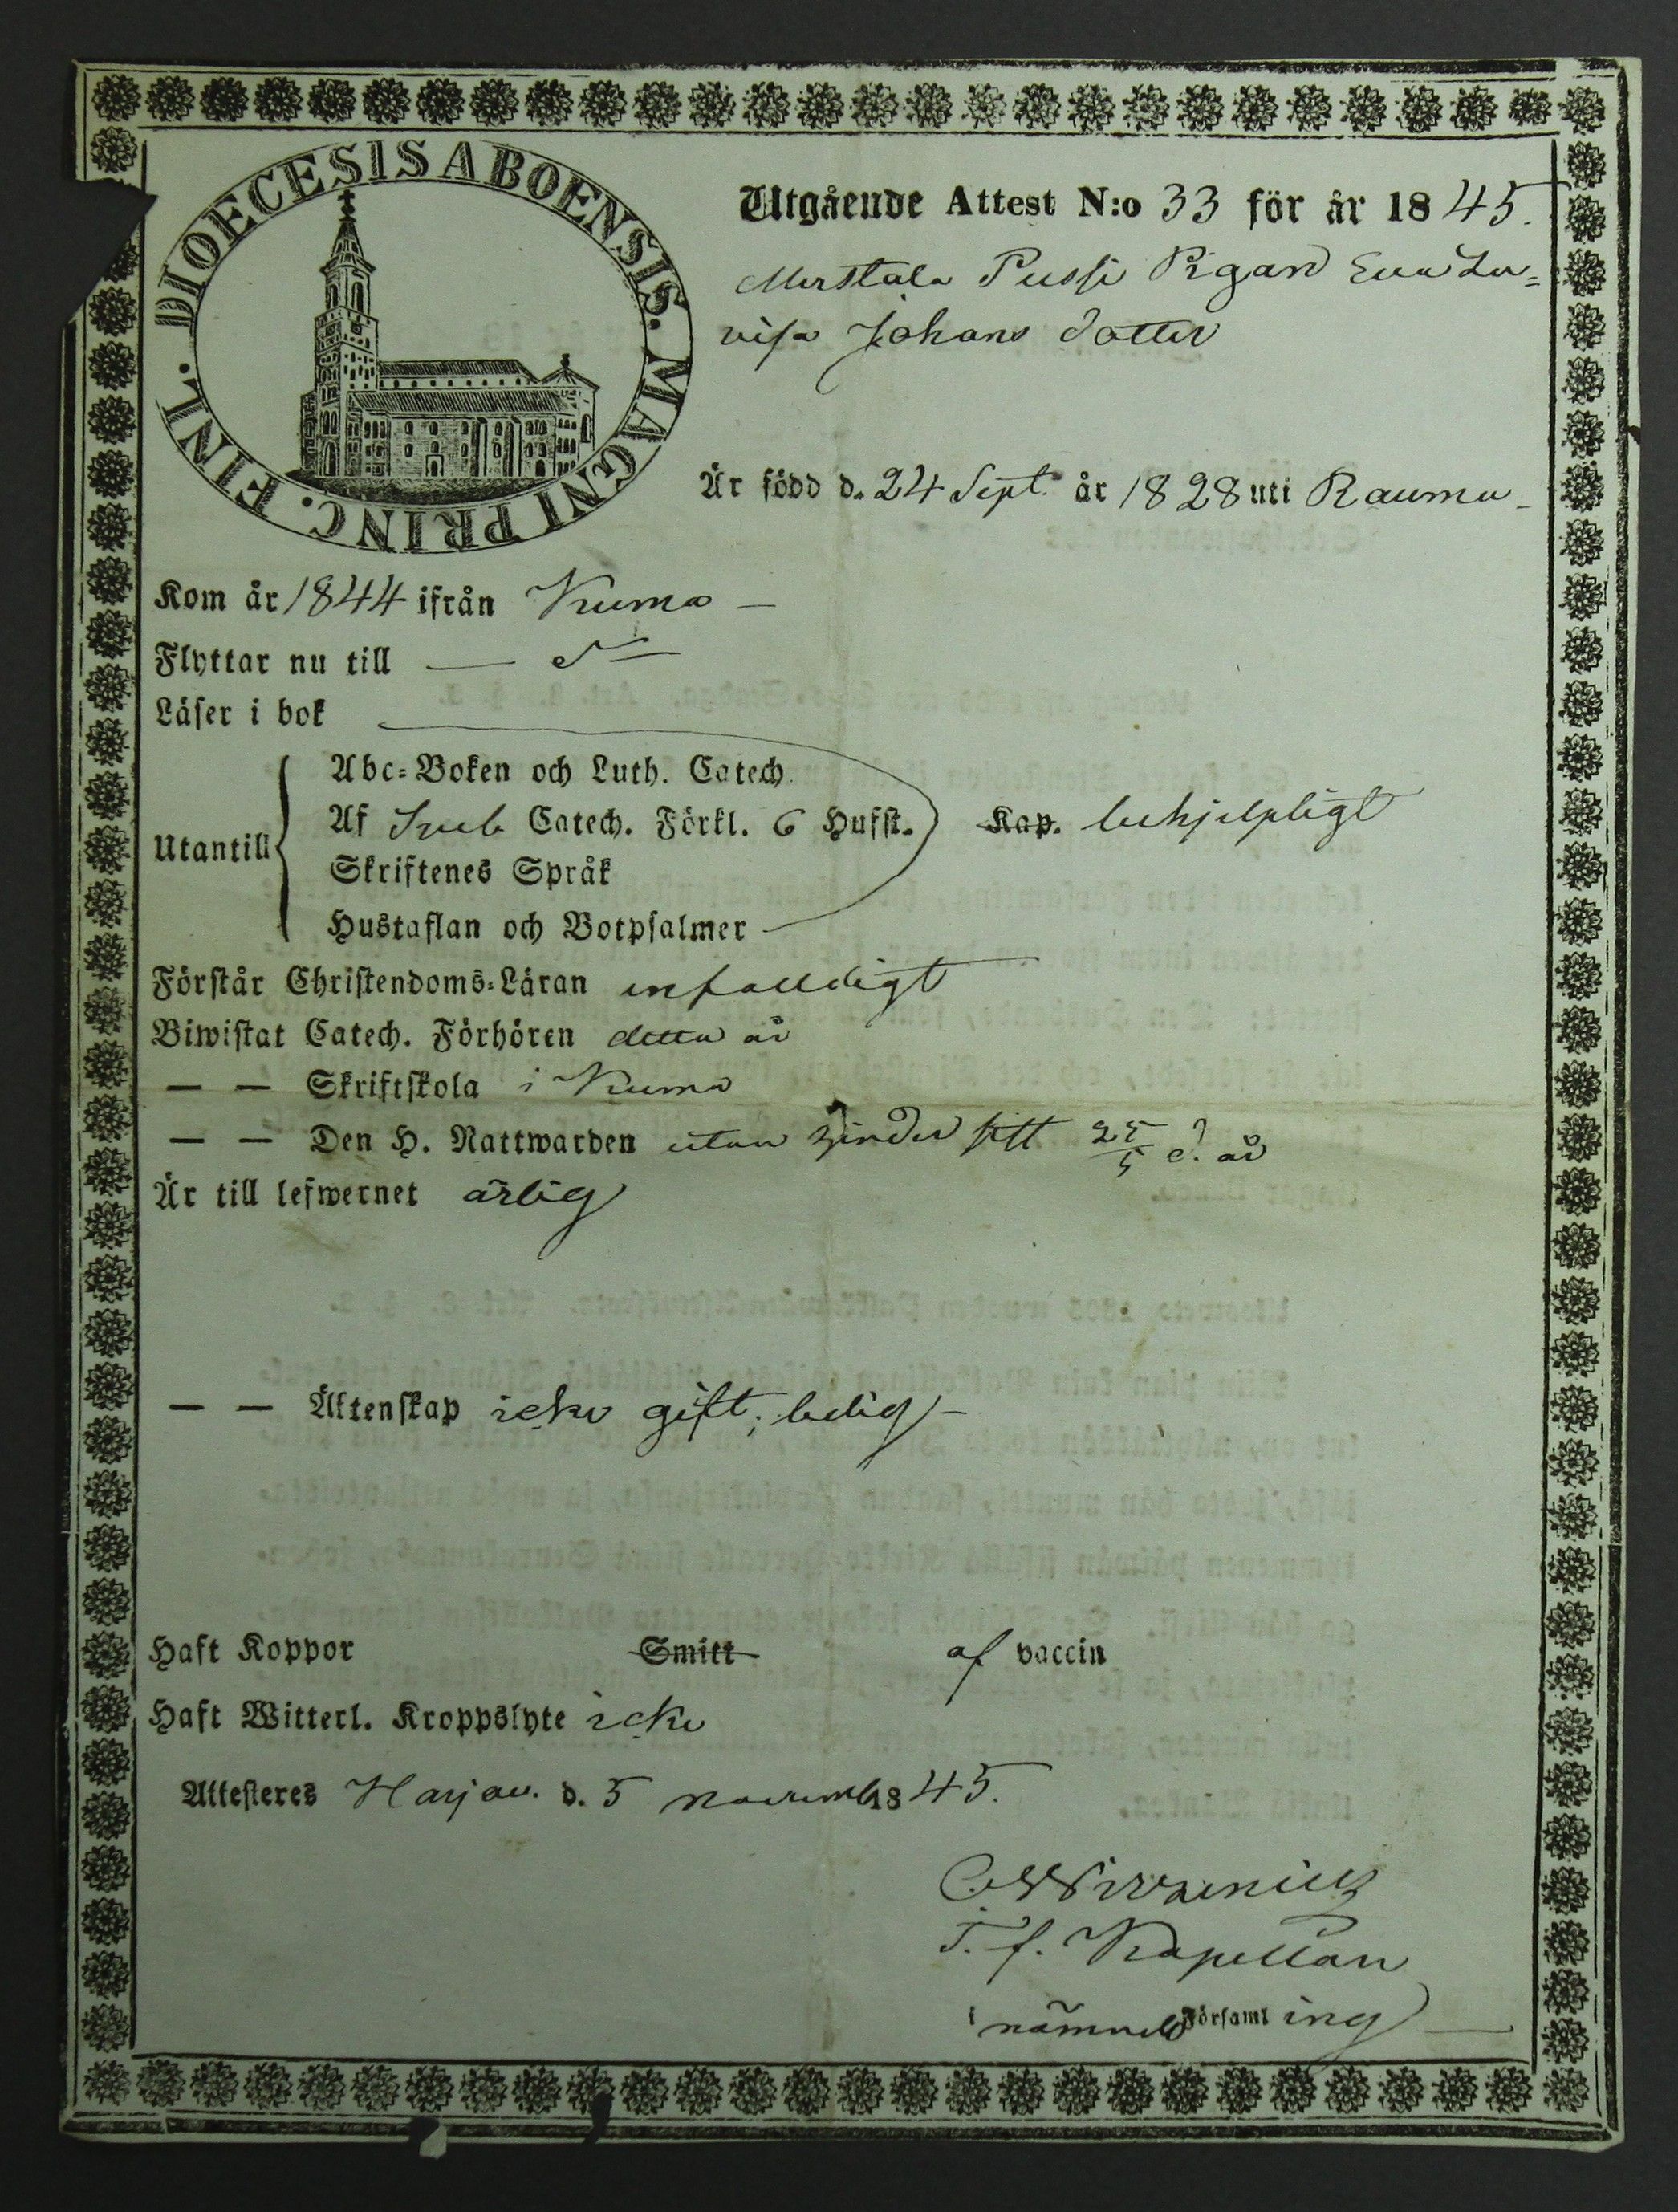 DIOECESIS ABOENSIS. MAGNI PRINC. FINL.
Utgående Attest N:o 33 för år 1845.
Merstala Pussi Pigan Eva Lo=
visa Johans dotter
Är född d. 24 Sept. år 1828 uti Raumo
Kom år 1844 ifrån Kumo
Flyttar nu till
Läser i bok
Utantill
Abc-Boken och Luth. Catech.
Af Sveb Catech. Förkl. 6 Hufst. Kap. behjelpligt
Skriftenes Språk
Hustaflan och Botpsalmer
Förstår Christendoms-Läran enfaldigt
Biwistat Catech. Förhören detta år
— — Skriftskola i Kumo
— — Den H. Nattwarden utan hinder sist 25/5 d. år
Är till lefwernet ärlig
— — Äktenskap icke gift; ledig
Haft Koppor Smitt af vaccin
Haft Witterl. Kroppslyte icke
Attesteres Harjav. d. 5 novemb 1845.
T. f. Kapellan
i nämnde Församling